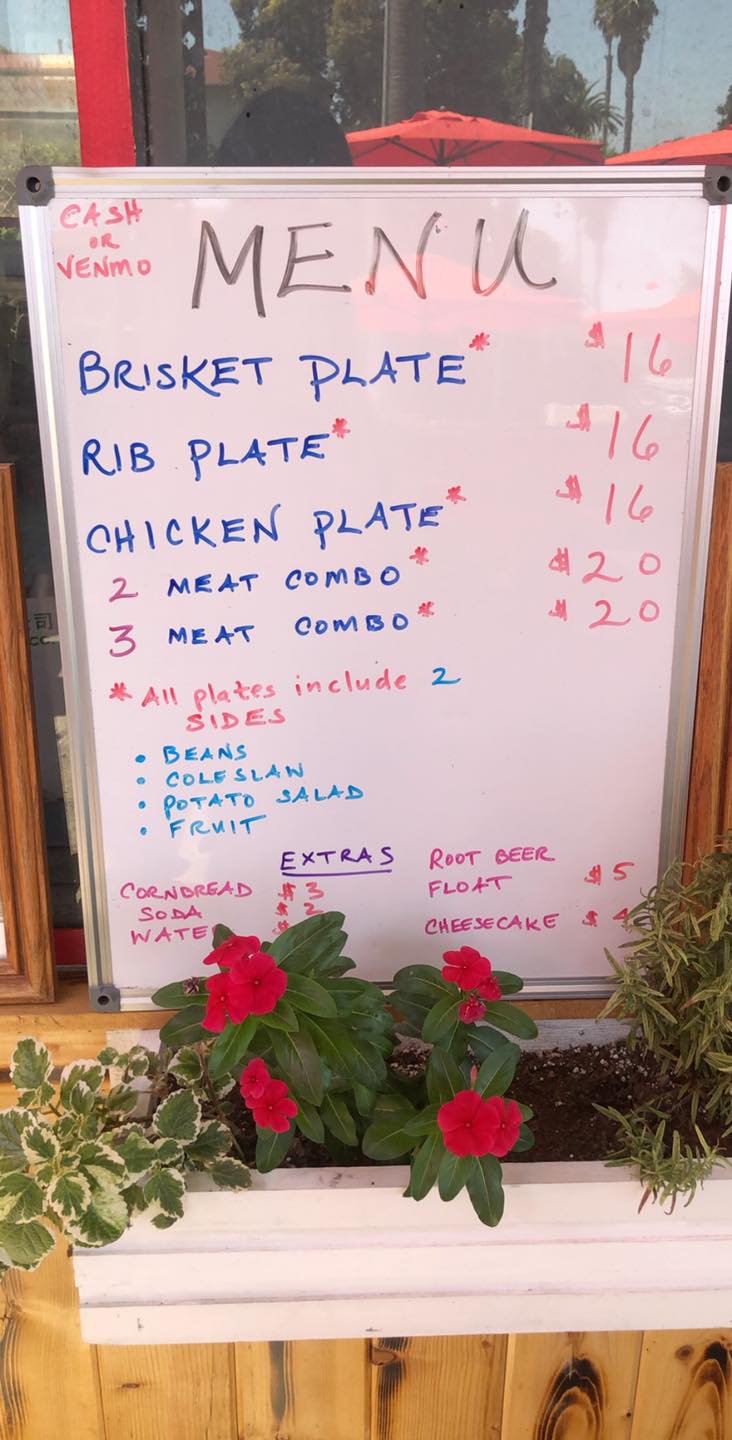 CASH
OR
VENMO
MENU
BRISKET PLATE* $16
RIB PLATE* $16
CHICKEN PLATE* $16
2 MEAT COMBO* $20
3 MEAT COMBO* $20
* All plates include 2
SIDES
• BEANS
• COLESLAW
• POTATO SALAD
• FRUIT
EXTRAS
CORNBREAD $3
SODA $2
ROOT BEER
FLOAT $5
CHEESECAKE $4